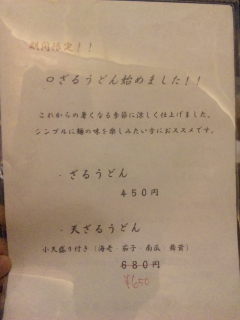 期間限定！！
○ざるうどん始めました！！
これからの暑くなる季節に涼しく仕上げました。
シンプルに麺の味を楽しみたい方におススメです。
・ざるうどん
４５０円
・天ざるうどん
小天盛り付き（海老・茄子・南瓜・舞茸）
６８０円
¥650